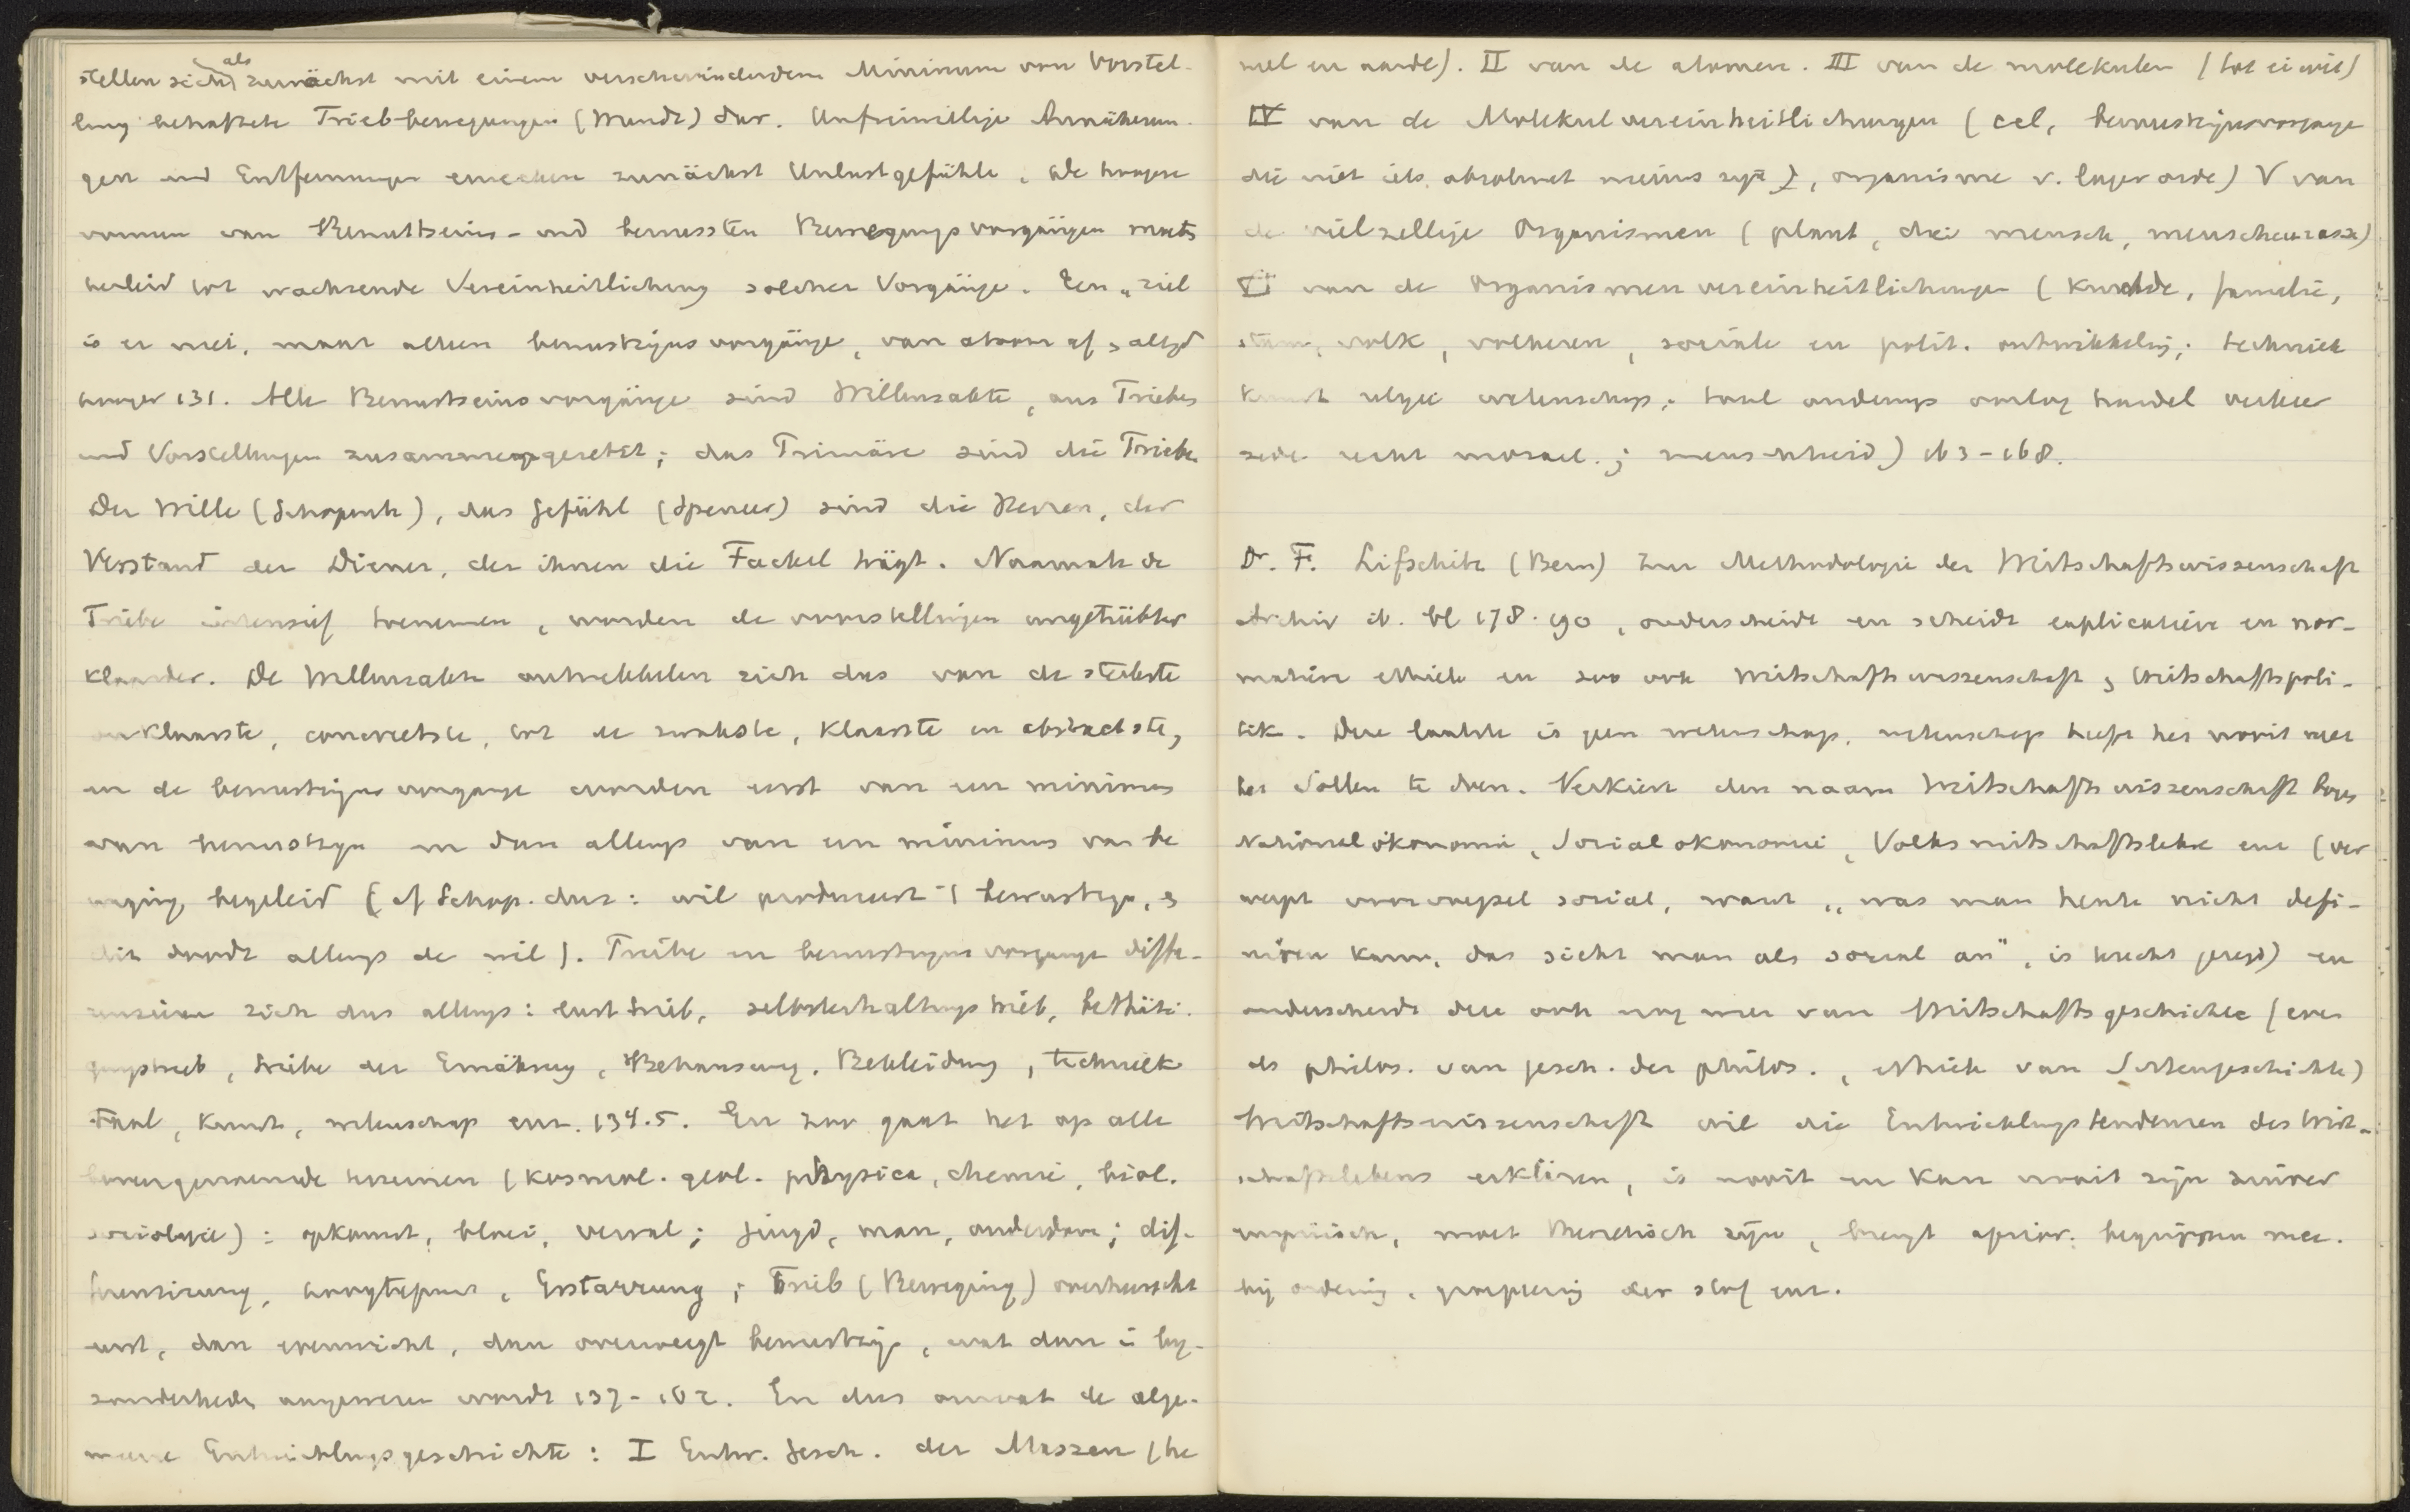 stellen sich als zunächst mit einem verschwindendem Minimum von Vorstel-
lung behaftete Trieb-bewegungen (Wundt) dar. Unfreiwillige Annäherun-
gen und Entfernungen erwecken zunächst Unlustgefühle. De hoogere
vormen van Bewusstseins- und bewussten Bewegungsvorgängen moets
herleid tot wachsende Vereinheitlichung solcher Vorgänge. Een „ziel
is er niet, maar alleen bewustzijns vorgänge, van atoom af, altijd
hooger 131. Alle Bewustseinsvorgänge sind Willensakte, aus Trieben
und Vorstellungen zusammengesetzt; das Primäre sind die Triebe
Der Wille (Schopenh), das Gefühl (Spencer) sind die Herren, der
Verstand der Diener, der ihnen die Fackel trägt. Naarmate de
Triebe intensief toenemen, worden de voorstellingen ungetrübter
klaarder. De Willensakten ontwikkelen zich dus van de sterkste
onklaarste, concreetste, tot de zwakste, klaarste en abstractste,
en de bewustzijns vorgange worden eerst van een minimum
van bewustzijn en dan allengs van een minimum van be
weging begeleid (cf Schop. dus: wil produceert 't bewustzijn, en
dit doodt allengs de wil). Triebe en bewustzijns vorgange diffe-
renzieren zich dus allengs: lusttrieb, selbsterhaltungstrieb, bethäti-
gungstrieb, triebe der Ernährung, Behausung, Bekleidung, techniek
taal, kunst, wetenschap enz. 134.5. En zoo gaat het op alle
bovengenoemde terreinen (kosmol. geol. physica, chemie, biol.
sociologie): opkomst, bloei, verval; jeugd, man, ouderdom; dif-
ferenzirung, hoogtepunt, Erstarrung; Trieb (Beweging) overheerscht
eerst, dan evenwicht, dan overweegt bewustzijn, wat dan in bij-
zonderheden aangewezen wordt 137-162. En dus omvat de alge-
meene Entwicklungsgeschichte: I Entw. Gesch. der Massen (he
mel en aarde). II van de atomen. III van de molekulen (tot eiwit)
IV van de Molekulvereinheitlichungen (cel, bewustzijnsvorgange
die niet iets absoluut nieuws zijn), organisme v. lager orde) V van
de vielzellige Organismen (plant, dier mensch, menschenrasse)
VI van de Organismenvereinheitlichungen (Kudde, familie,
stam, volk, volkeren, sociale en polit. ontwikkeling; techniek
kunst religie wetenschap; taal onderwijs oorlog handel verkeer
zede recht moraal.; menschheid) 163-168.
Dr. F. Lifschitz (Bern) Zur Methodologie der Wirtschaftswissenschaft
Archiv ib. bl 178-190, onderscheidt en scheidt explicatieve en nor-
matieve ethiek en zoo ook Wirtschaftswissenschaft & Wirtschaftspoli-
tik. Deze laatste is geen wetenschap, wetenschap heeft het nooit met
het Sollen te doen. Verkiest den naam Wirtschaftswissenschaft boven
Nationalökonomie, Socialökonomie, Volkswirtschaftslehre enz (ver
werpt voorvoegsel social, want „was man heute nicht defi-
niren kann, das sieht man als social an", is terecht gezegd) en
onderscheidt deze ook nog weer van Wirtschaftsgeschichte (even
als philos. van gesch. der philos., ethiek van Sittengeschichte)
Wirtschaftswissenschaft wil die Entwicklungstendenzen des Wirt-
schaftslebens erklären, is nooit en kan nooit zijn zuiver
empirisch, moet theoretisch zijn, brengt aprior. begrippen mee.
bij ordening, groepeering der stof enz.